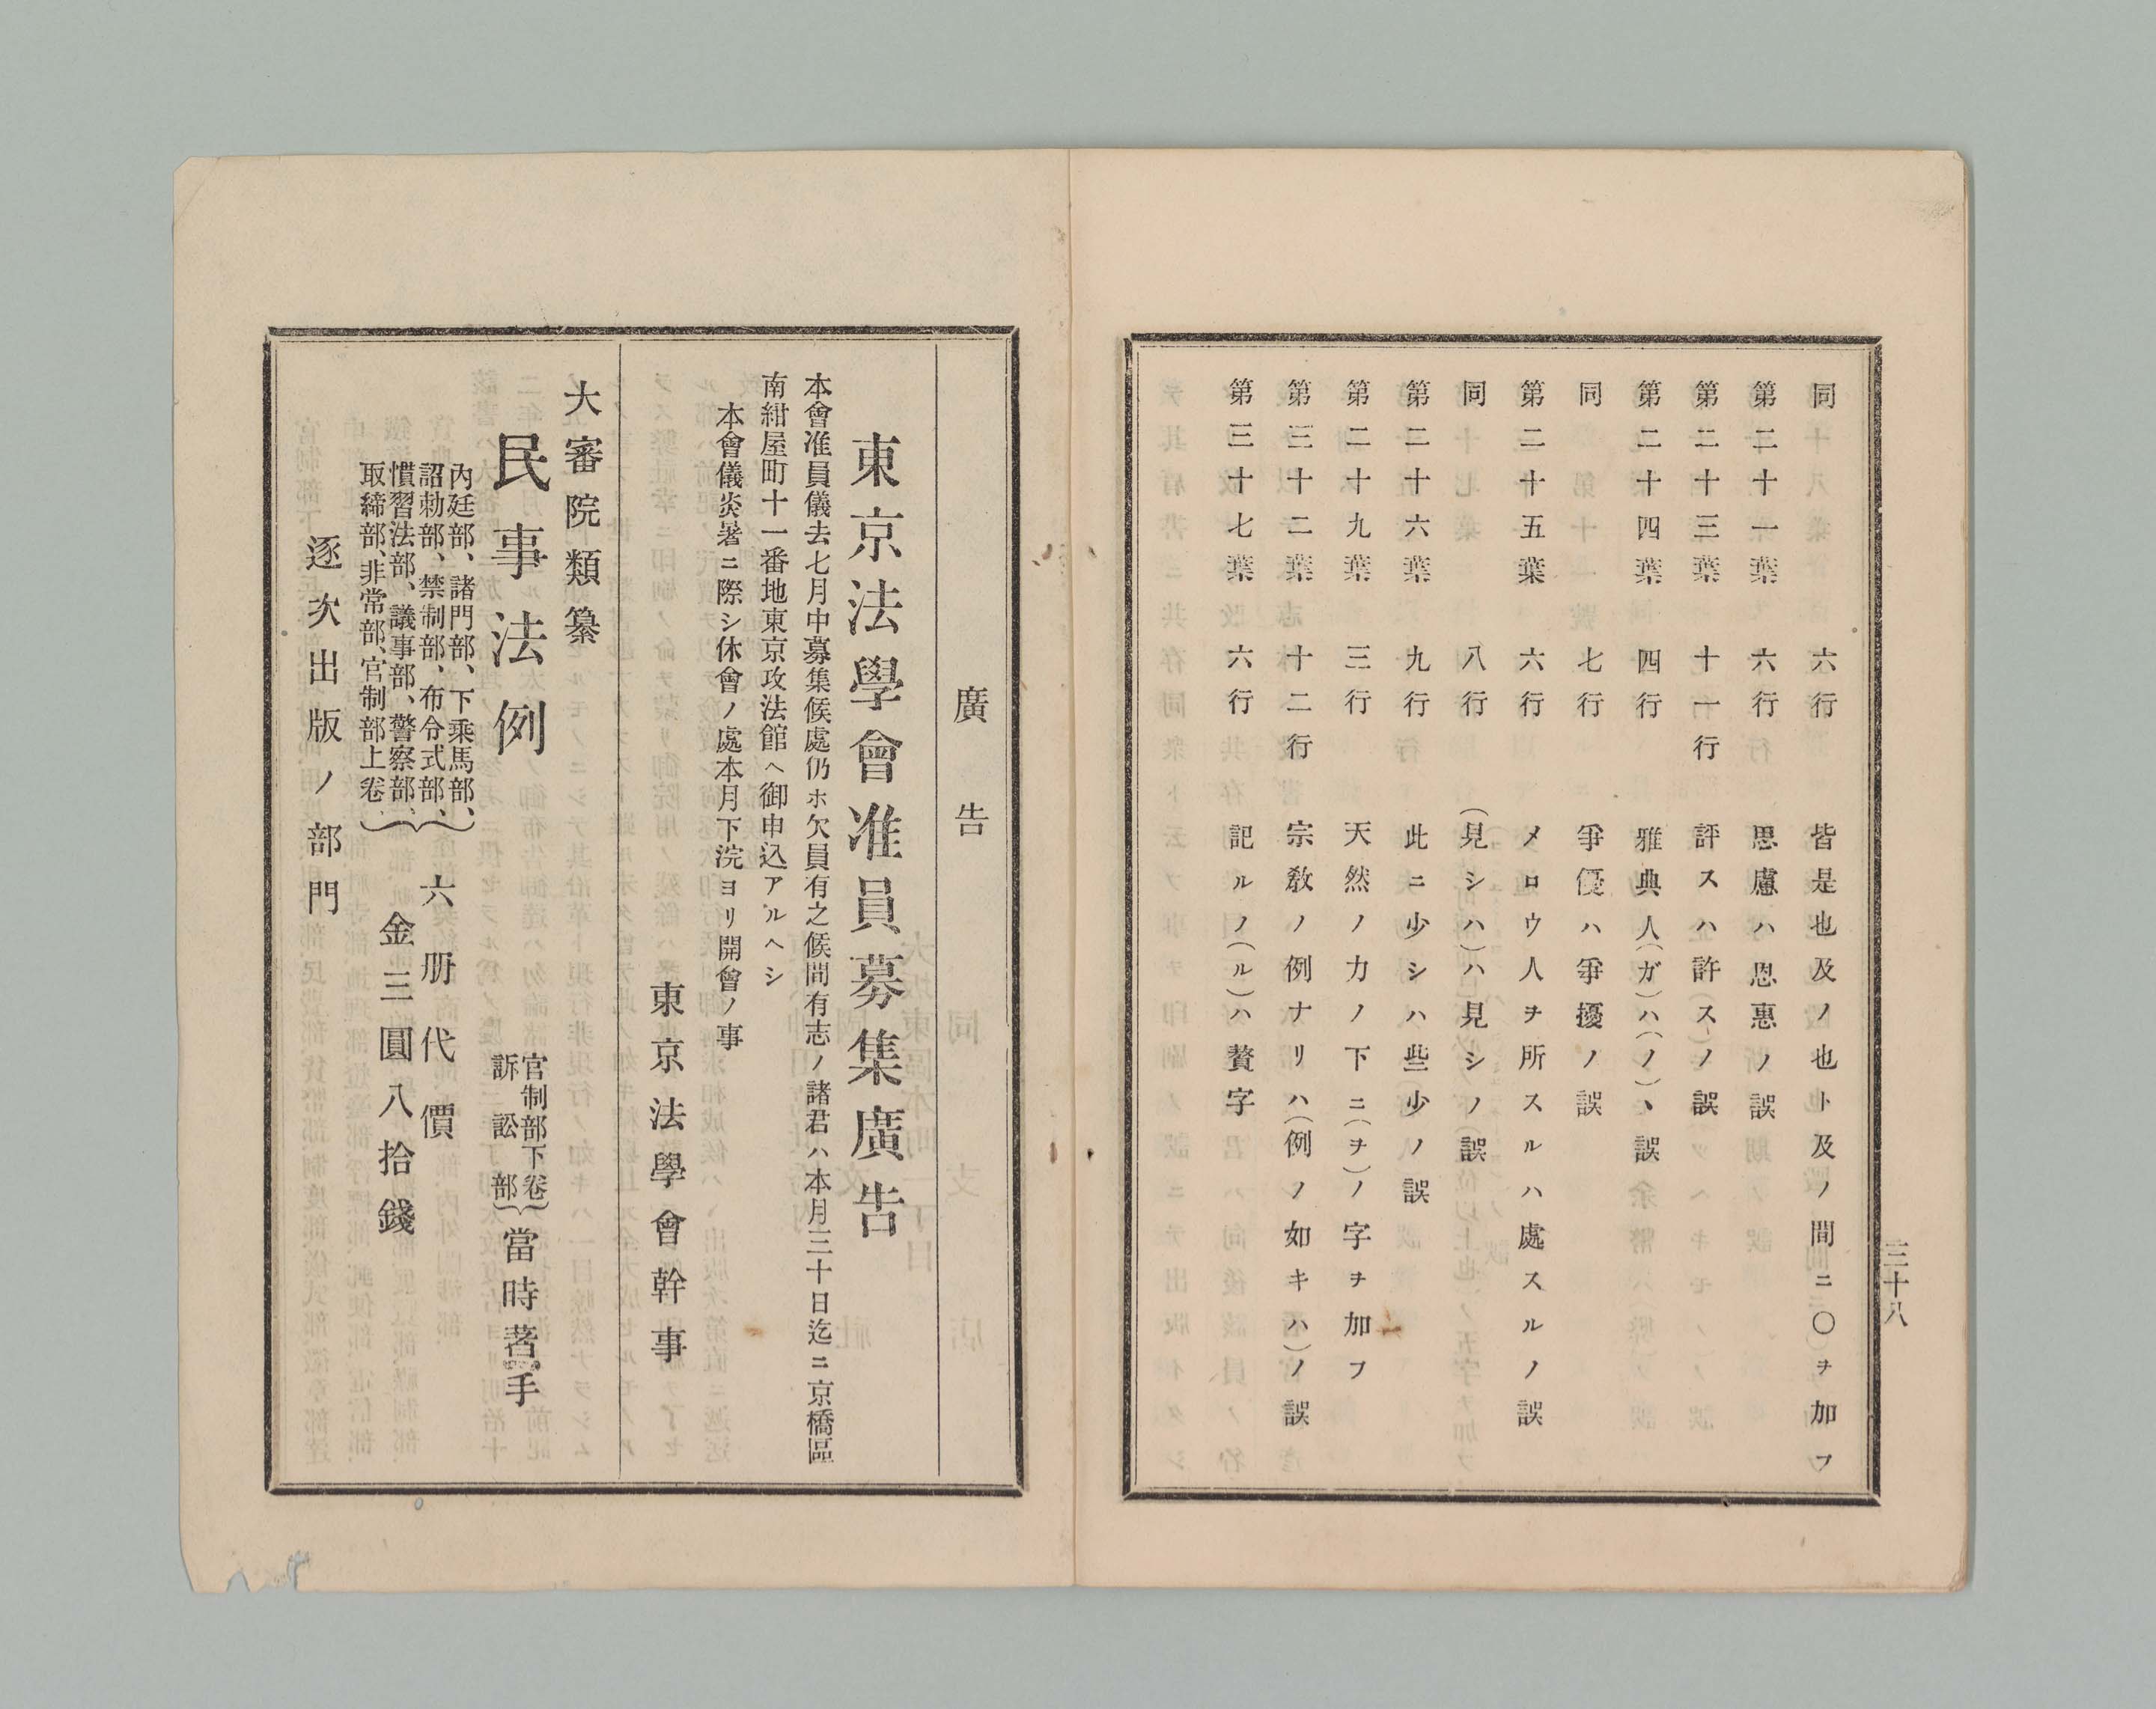 三十八
同十八葉 六行 皆是也及ノ也ト及ノ間ニ〇ヲ加フ
第二十一葉 六行 思慮ハ恩惠ノ誤
第二十三葉 十一行 評スハ許スノ誤
第二十四葉 四行 雅典人(ガ)ハ(ノ)、誤
同 七行 爭優ハ爭擾ノ誤
第二十五葉 六行 メロウ人ヲ所スルハ處スルノ誤
同 八行 (見シハ)ハ見シノ誤
第二十六葉 九行 此ニ少シハ些少ノ誤
第二十九葉 三行 天然ノ力ノ下ニ(ヲ)ノ字ヲ加フ
第三十二葉 十二行 宗敎ノ例ナリハ(例ノ如キハ)ノ誤
第三十七葉 六行 記ルノ(ル)ハ贅字
廣告
東京法學會准員募集廣告
本會准員儀去七月中募集候處仍ホ欠員有之候間有志ノ諸君ハ本月三十日迄ニ京橋區
南紺屋町十一番地東京攻法館ヘ御申込アルヘシ
本會儀炎暑ニ際シ休會ノ處本月下浣ヨリ開會ノ事
東京法學會幹事
大審院類纂
民事法例
官制部下卷
訴訟部
當時著手
內廷部、諸門部、下乘馬部、
詔勅部、禁制部、布令式部、
慣習法部、議事部、警察部、
取締部、非常部、官制部上卷、
六册代價
金三圓八拾錢
逐次出版ノ部門